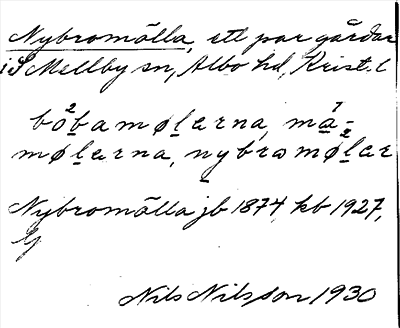 Nybromölla, ett par gårdar
i S Mellby sn, Albo hd, Krist. l
bo²bamøларna, má-
møларna, nybromø²lar
Nybromölla jb 1874, kb 1927,
G
Nils Nilsson 1930